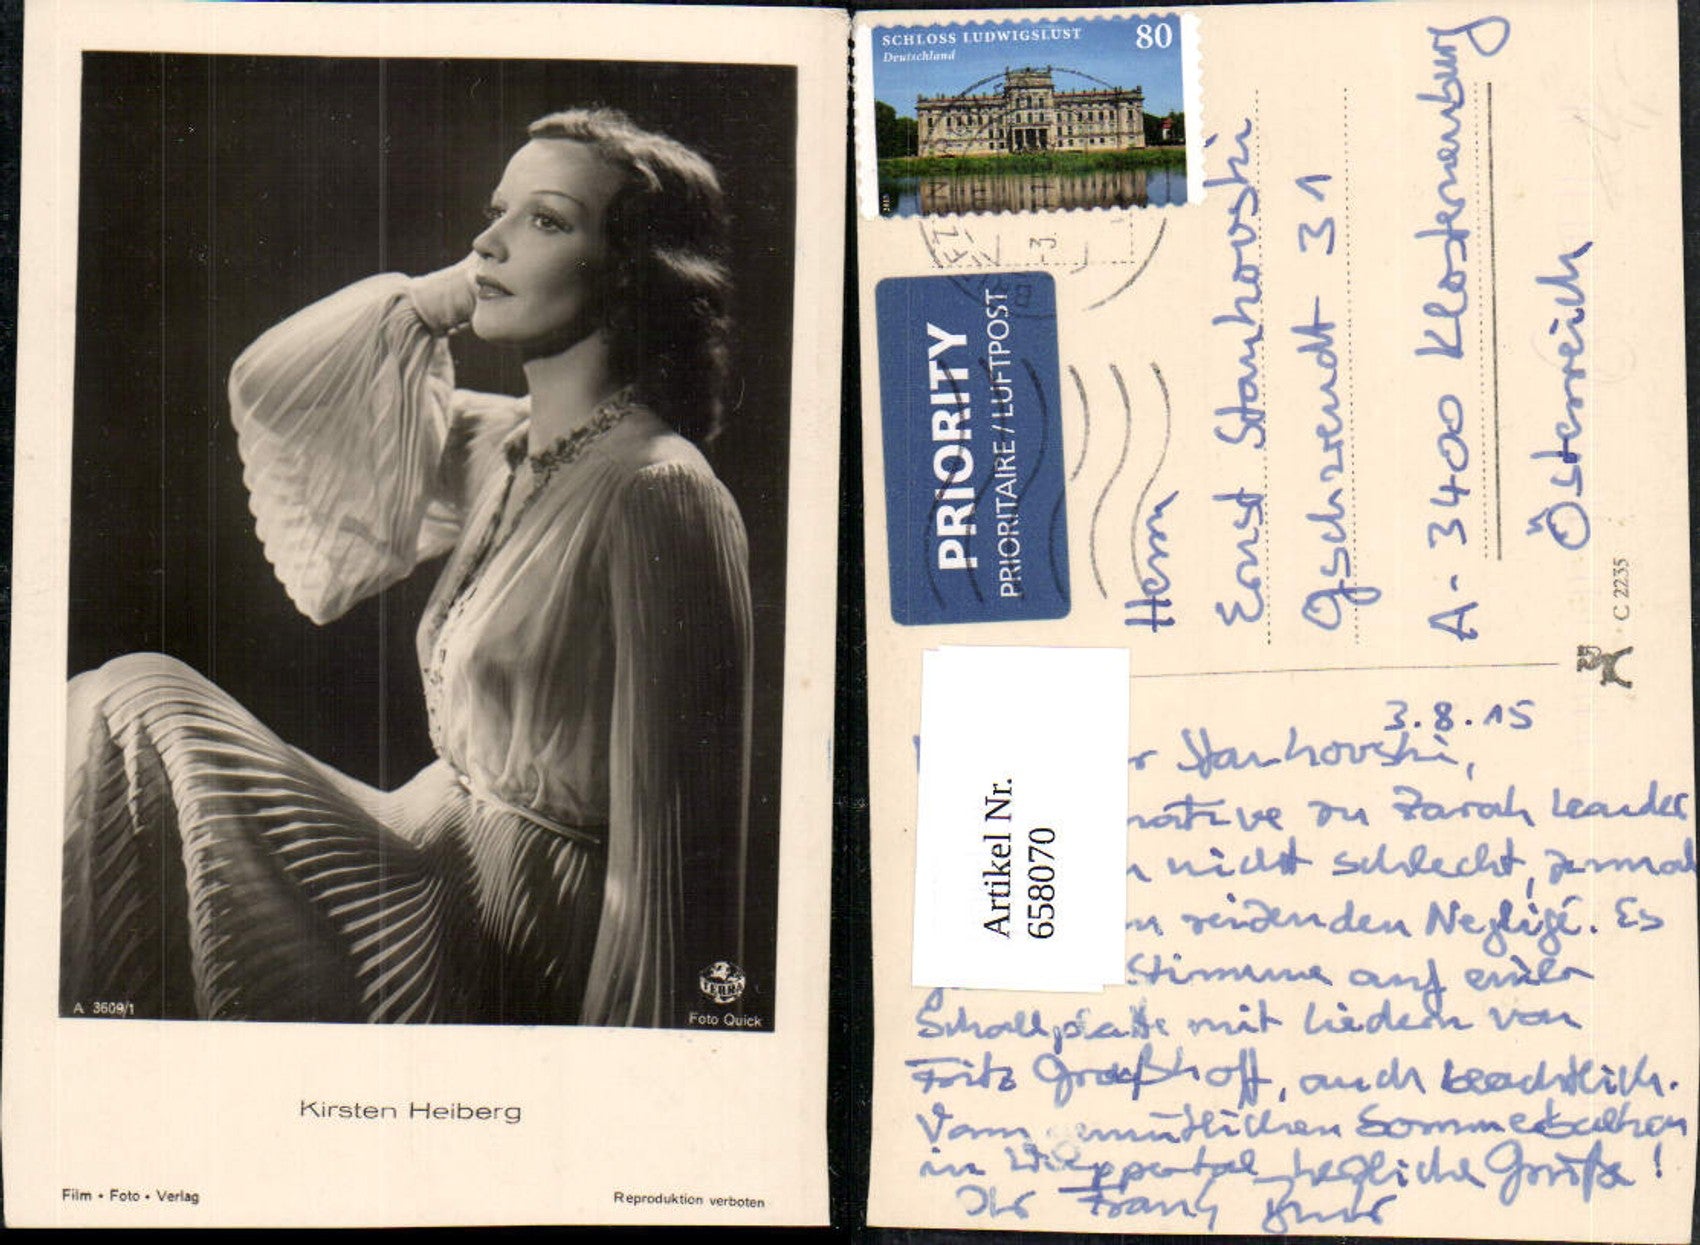 A 3609/1
TERRA
Foto Quick
Kirsten Heiberg
Film • Foto • Verlag
Reproduktion verboten
SCHLOSS LUDWIGSLUST
80
Deutschland
2015
PRIORITY
PRIORITAIRE / LUFTPOST
Herrn
Ernst Stankovski
Gschwendt 31
A-3400 Klosterneuburg
Österreich
C 2235
Artikel Nr.
6580070
3.8.15
r Stankovski,
native zu Zarah Leander
n nicht schlecht, zumal
n reizenden Negligé. Es
Stimme auf einer
Schallplatte mit Liedern von
Fritz Graßhoff, auch beachtlich.
Vom gemütlichen Sommerbalkon
in Wuppertal herzliche Grüße!
Ihr Franz